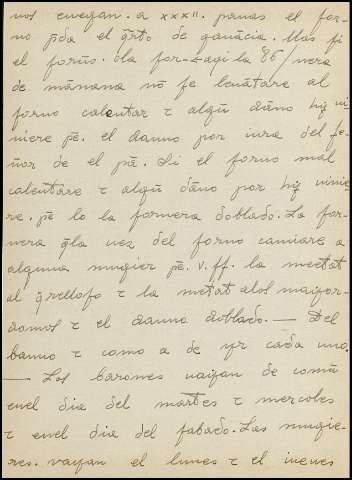 nos cuezan. a xxxII. panas el for-
no pda el qrto de ganācia. Mas si
el fornō. Ela for-
de mānana nō se leuātare al
forno calentar τ algū dāno hy ui
niere pē. el danno por iura del se
ñor de el pā. Si el forno mal
calentare τ algū dāno por hy uinie
re. pē lo la fornera doblado. La for-
nera q̄ la uez del forno camiare a
alguna mugier pē. v. ff. la meetat
al q̄relloso τ la metat alos maior-
domos τ el danno doblado. — Del
banno τ como a de yr cada uno.
— Los barones uaian de comū
enel dia del martes τ mercoles
τ enel dia del sabado. Las mugie-
res. vayan el lunes τ el iueues